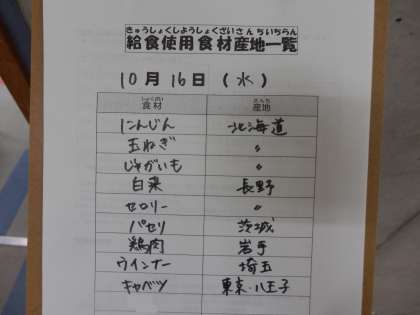 きゅうしょくしようしょくざいさんちいちらん
給食使用食材産地一覧
10月16日(水)
しょくざい さんち
食材 産地
にんじん 北海道
玉ねぎ 〃
じゃがいも 〃
白菜 長野
セロリー 〃
パセリ 茨城
鶏肉 岩手
ウインナー 埼玉
キャベツ 東京・八王子